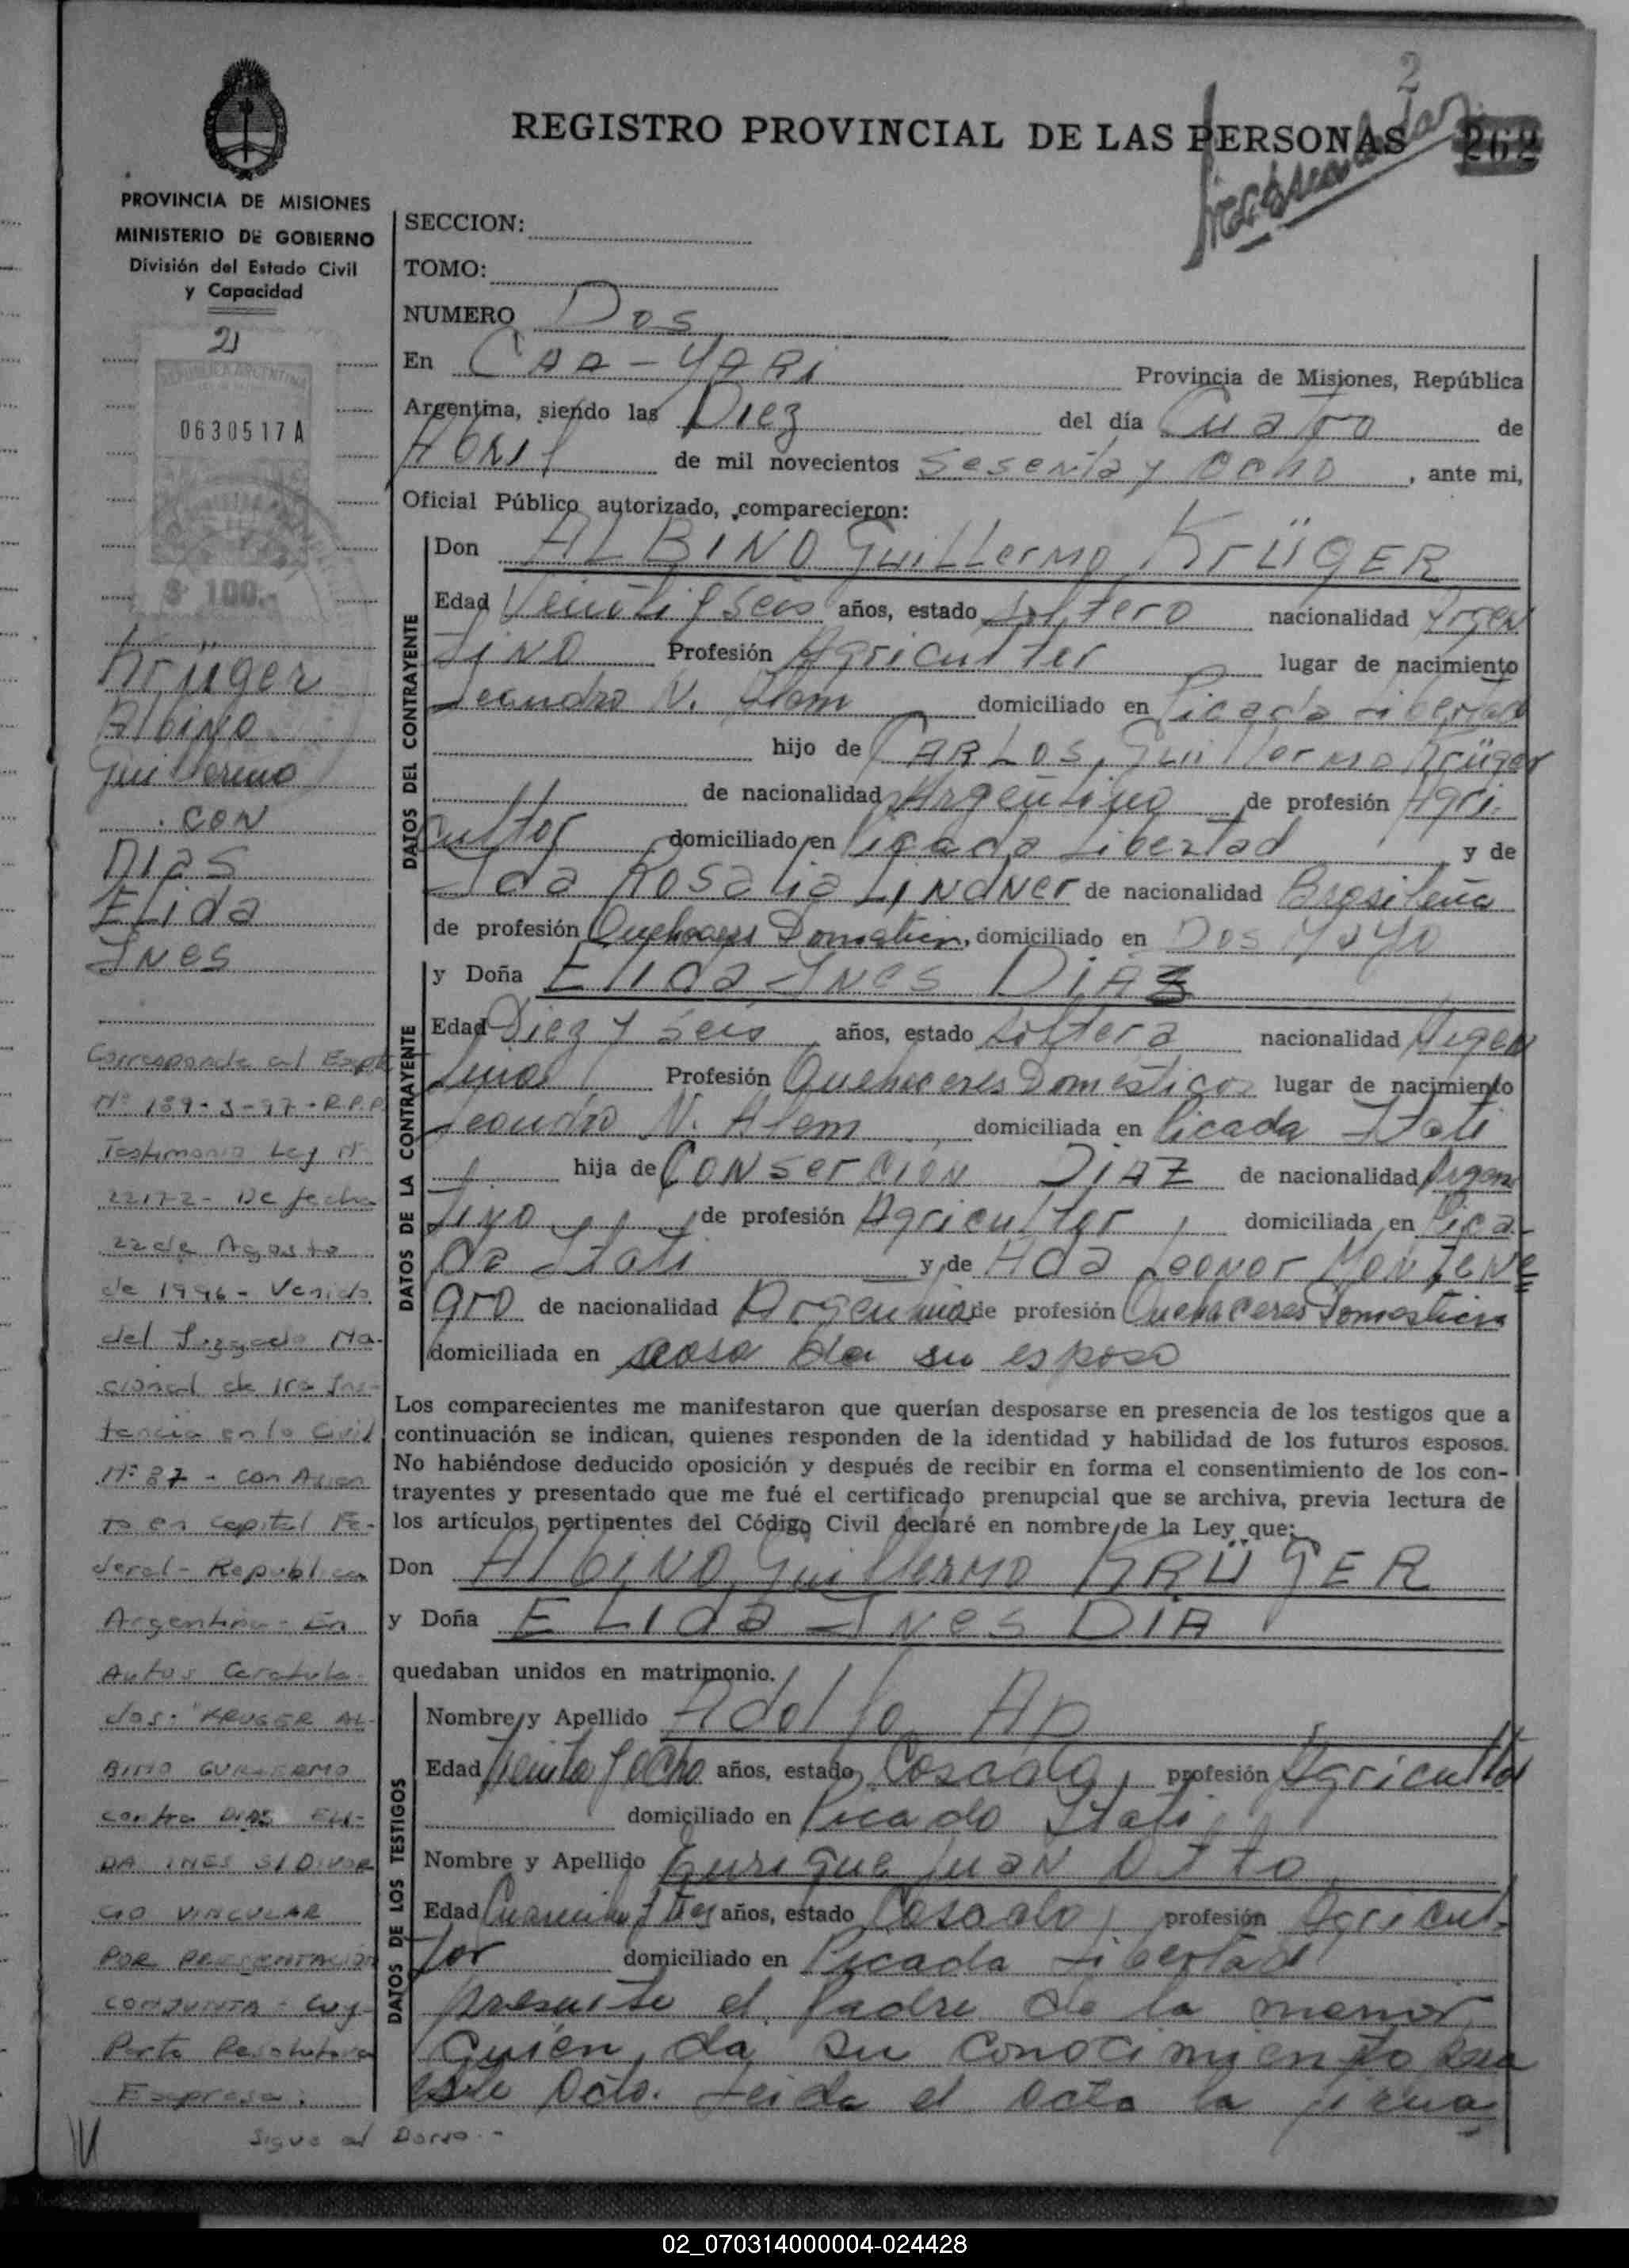 2
REGISTRO PROVINCIAL DE LAS PERSONAS
262
PROVINCIA DE MISIONES
MINISTERIO DE GOBIERNO
División del Estado Civil
y Capacidad
2)
REPUBLICA ARGENTINA
0630517A
$ 100.-
Krüger
Albino
Guillermo
. CON
DIAS
ELida
INes
Corresponde al Expte
Nº 189-3-97-R.P.P
Testimonio Ley Nº
22172- De fecha
22 de Agosto
de 1996- Venido
del Juzgado Na-
cional de 1ra Ins-
tancia en lo Civil
Nº 87 - con Asien
to en Capital Fe-
deral- Republica
Argentina- En
Autos Caratula-
dos: "KRUGER AL-
BINO GUILLERMO
contra DIAS ELI-
DA INES S/DIVOR
CIO VINCULAR
POR PRESENTACIÓN
CONJUNTA- Cuy-
Parte Resolutiva
Expresa:
Sigue al Dorso.-
SECCION:
TOMO:
NUMERO Dos
En CAA-YARI Provincia de Misiones, República
Argentina, siendo las Diez del día Cuatro de
Abril de mil novecientos sesenta y Ocho, ante mi,
Oficial Público autorizado, comparecieron:
DATOS DEL CONTRAYENTE
Don ALBINO GuiLLermo KrÜGER
Edad Veinti y Seis años, estado Soltero nacionalidad Argen
tino Profesión Agricultor lugar de nacimiento
Leandro N. Alem domiciliado en Picada Libertad
hijo de CARLOS, Guillermo Krüger
de nacionalidad Argentino de profesión Agri-
cultor domiciliado en Picada Libertad y de
Ida Rosalia Lindner de nacionalidad Brasileña
de profesión Quehaceres Domesticos, domiciliado en Dos Mayo
DATOS DE LA CONTRAYENTE
y Doña Elida INes DIAS
Edad Diez y Seis años, estado Soltera nacionalidad Argen
tina Profesión Quehaceres Domesticos lugar de nacimiento
Leandro N. Alem domiciliada en Picada Itati
hija de CONSerCIÓN DIAZ de nacionalidad Argen
tino de profesión Agricultor domiciliada en Pica-
da Itati y de Ada Leonor Montene
gro de nacionalidad Argentina de profesión Quehaceres Domesticos
domiciliada en casa de su esposo
Los comparecientes me manifestaron que querían desposarse en presencia de los testigos que a
continuación se indican, quienes responden de la identidad y habilidad de los futuros esposos.
No habiéndose deducido oposición y después de recibir en forma el consentimiento de los con-
trayentes y presentado que me fué el certificado prenupcial que se archiva, previa lectura de
los artículos pertinentes del Código Civil declaré en nombre de la Ley que:
Don AlbiNO Guillermo KRÜGER
y Doña ELIda INes DIA
quedaban unidos en matrimonio.
DATOS DE LOS TESTIGOS
Nombre y Apellido Adolfo Ap
Edad Treinta y Ocho años, estado Casado, profesión Agricultor
domiciliado en Picada Itati
Nombre y Apellido Enrique Juan Otto
Edad Cuarenta y tres años, estado Casado, profesión Agricul-
tor domiciliado en Picada Libertad
presente el Padre de la menor
Quien da su conocimiento para
este acto. Leida el acta la firma
02_070314000004-024428